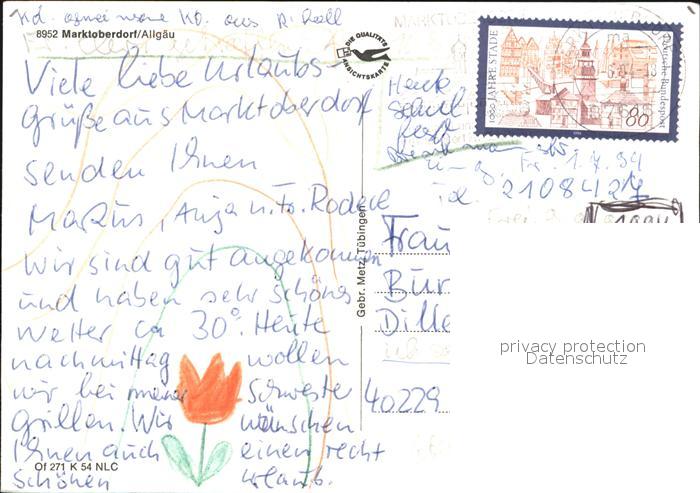 8952 Marktoberdorf/Allgäu
Viele liebe Urlaubs
grüße aus Marktoberdorf
senden Ihnen
Markus, Anja u. Fr. Rodeck
Wir sind gut angekommen
und haben sehr schönes
Wetter ca 30°. Heute
nachmittag wollen
wir bei meiner Schwester
grillen. Wir wünschen
Ihnen auch einen recht
schönen Urlaub.
Of 271 K 54 NLC
DIE QUALITÄTS
ANSICHTSKARTE
Gebr. Metz, Tübingen
1000 JAHRE STADE
Deutsche Bundespost
80
Fr. 1.7.94
Tel. 2108427
Frau
Bür
Dille
40229
privacy protection
Datenschutz